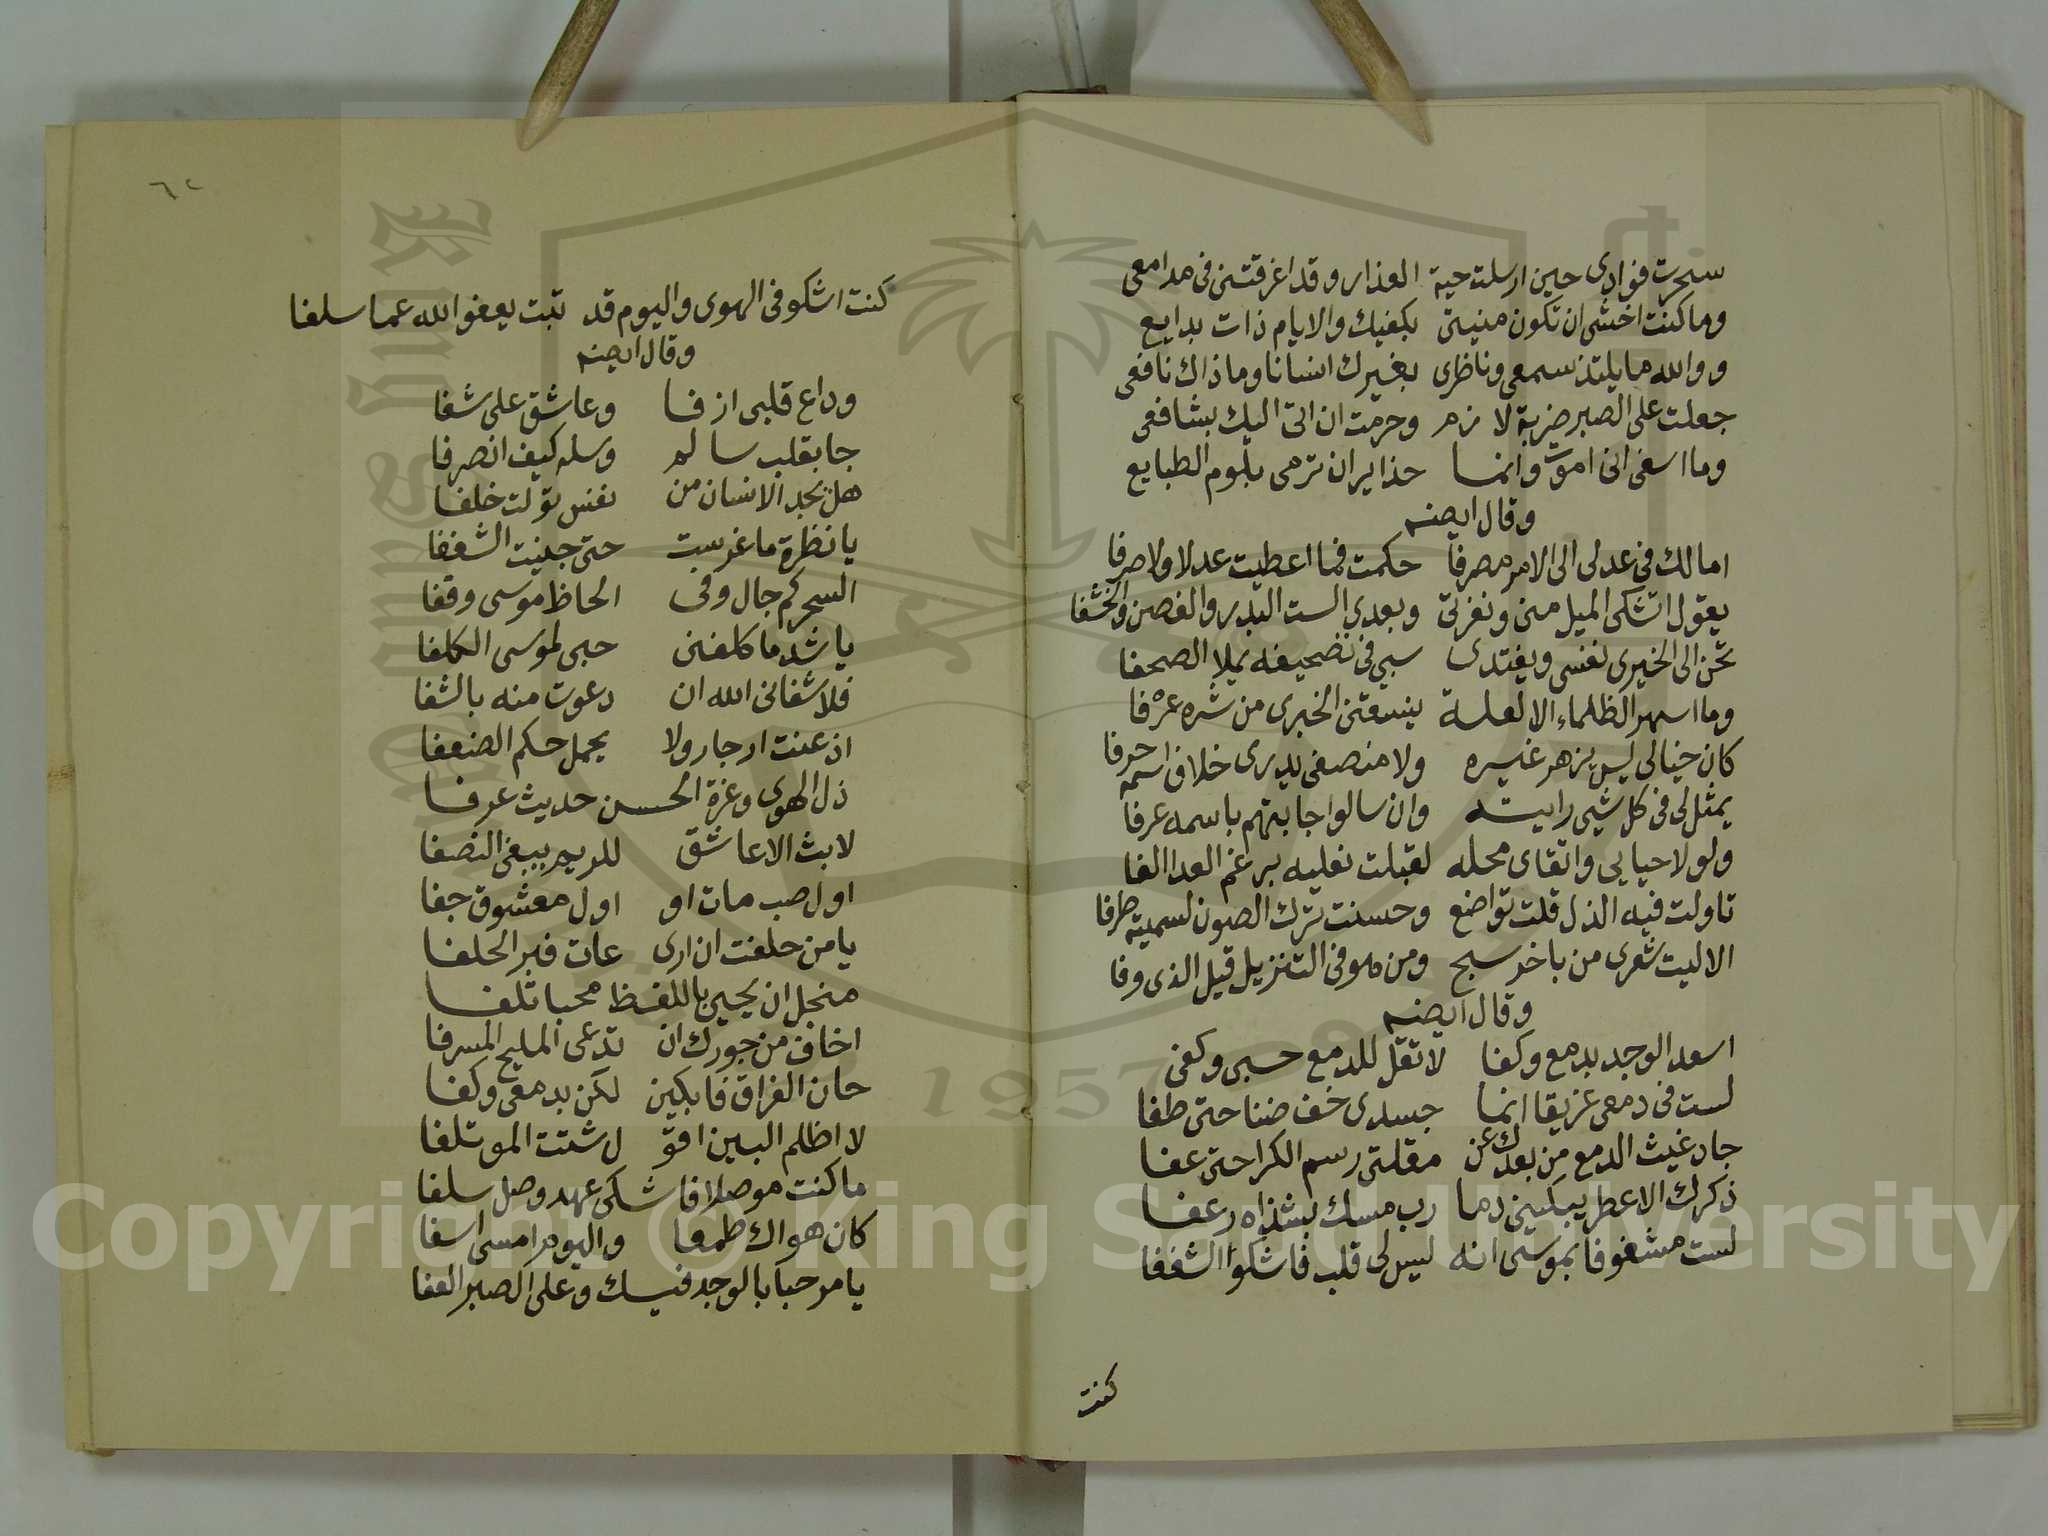 سحرت فوادى حين ارسلت حية العذار وقد اغرقتنى فى مدامعى
وما كنت اخشى ان تكون منيتى بكفيك والايام ذات بدايع
ووالله ما يلتذ سمعى وناظرى بغيرك انسانا وما ذاك نافعى
جعلت على الصبر ضربة لازم وحرمت ان اتى اليك بشافعى
وما اسفى انى اموت وانما حذايران ترمى بلوم الطبايع
وقال ايضه
امالك فى عدلى الى الامر مصرفا حكمت فما اعطيت عدلا ولا صرفا
يقول اتشكى الميل منى ونفرتى وبعدى الست البدر والغصن والخشفا
تحن الى الخيرى نفسى ويفتدى سبى فى تصحيفه يملا الصحفا
وما اسهر الظلماء الا لعلة ينسقنى الخيرى من نشره عرفا
كان خيالى ليس يزهر غيره ولا منصفى يدرى خلاف اسمه حرفا
يمثل لى فى كل شيى رايته وان سالوا جابتهم باسمه عرفا
ولولا حيايى واتقاى محله لقبلت نعليه برغم العدا الفا
تاولت فيه الذل قلت تواضع وحسنت ترك الصون لسميته ظرفا
الا ليت شعرى من باخر سبح ومن هو فى التنزيل قيل الذى وفا
وقال ايضه
اسعد الوجد بدمع وكفا لا تقل للدمع حسبى وكفى
لست فى دمعى غريقا انما جسدى خف ضنا حتى طفا
جاد غيث الدمع من بعدك عن مقلتى رسم الكرا حتى عفا
ذكرك الاعطر يبكينى دما رب مسك بشذاه رعفا
لست مشغوفا بموسى انه ليس لى قلب فاشكوا الشغفا
كنت
٦٢
كنت اشكو فى الهوى واليوم قد تبت يعفو الله عما سلفا
وقال ايضه
وداع قلبى ازفا وعاشق على شفا
جا بقلب سالم وسله كيف انصرفا
هل يجد الانسان من نفس تولت خلفا
يا نظرة ما غرست حتى جنيت الشغفا
السحركم جال وفى الحاظ موسى وقفا
يا شد ما كلفنى حبى لموسى الكلفا
فلا شفانى الله ان دعوت منه بالشفا
اذ عنت ارجار ولا يحمل حكم الضعفا
ذل الهوى وعزة الحسن حديث عرفا
لابث الا عاشق للريم يبغى النصفا
اول صب مات او اول معشوق جفا
يا من حلفت ان ارى عات فبر الحلفا
منخل ان يحيى باللفظ محبا تلفا
اخاف من جورك ان تدعى المليح المسرفا
حان الفراق فابكين لكن بدمعى وكفا
لا اظلم البين افتو ل شتت الموتلفا
ما كنت موصلا فاشكى عهد وصل سلفا
كان هواك طمعا واليوم امسى اسفا
يا مرحبا بالوجد فيك وعلى الصبر العفا
Copyright © King Saud University
1957